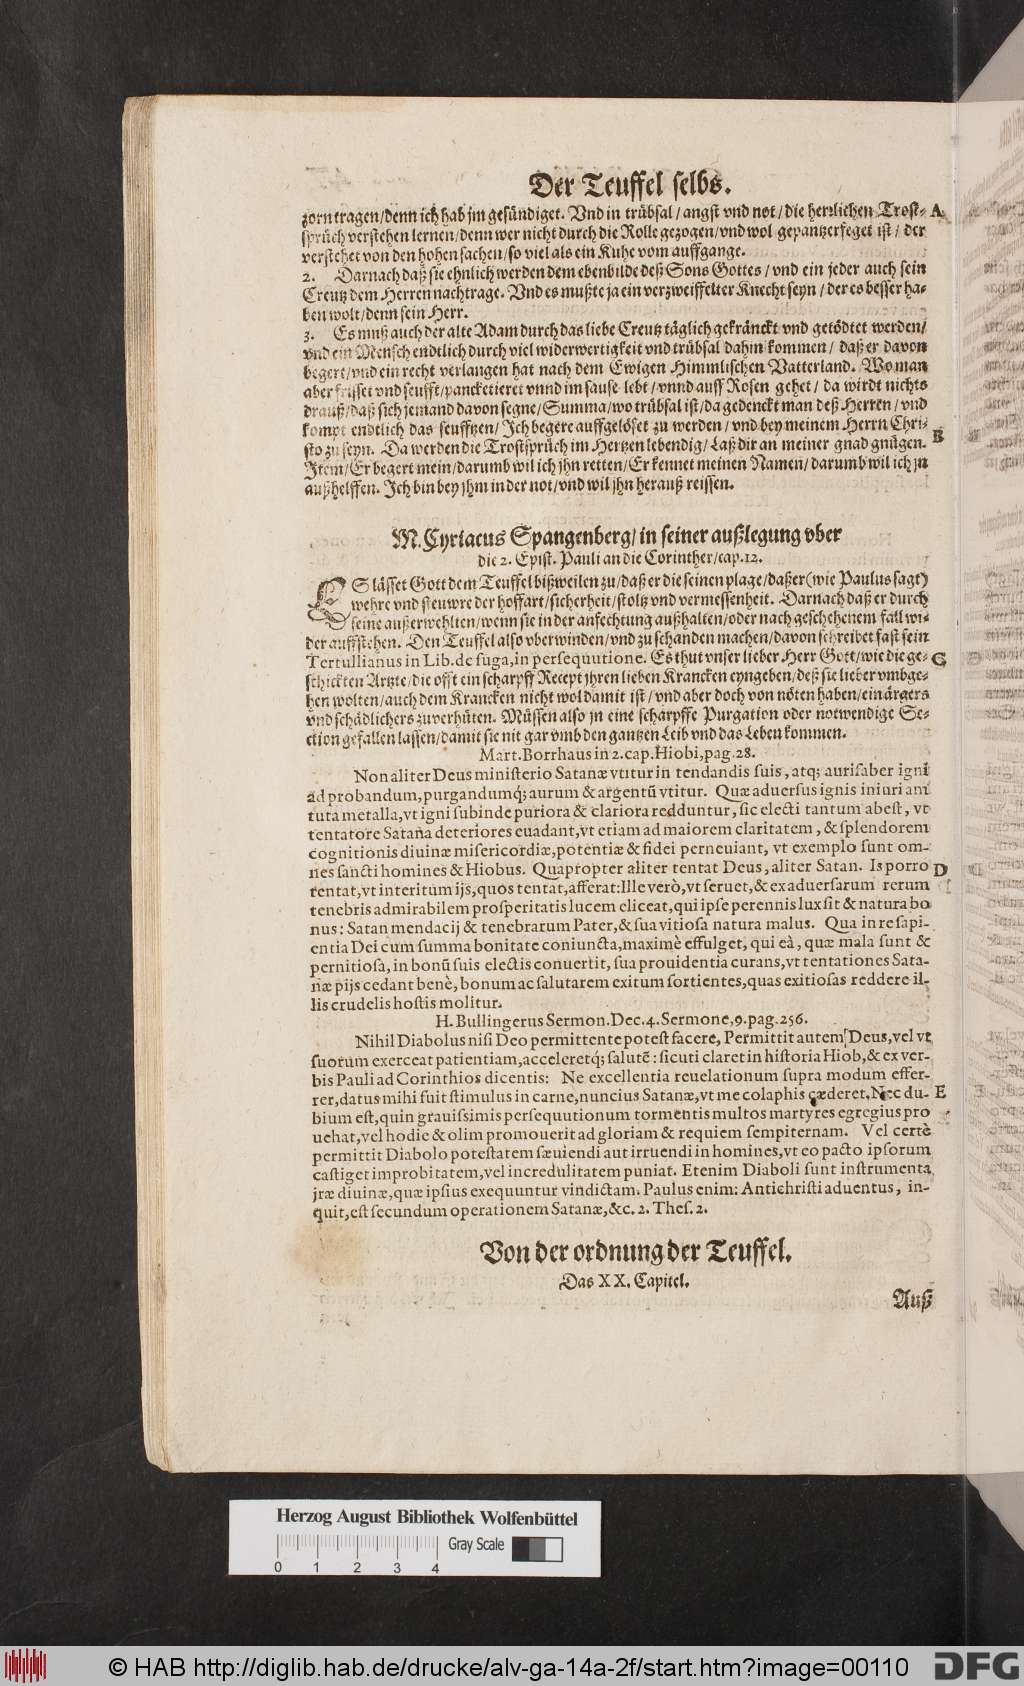 Der Teuffel selbs.
zorn tragen/denn ich hab jm gesündiget. Vnd in trübsal/angst vnd not/die herrlichen Trost- A
sprüch verstehen lernen/denn wer nicht durch die Rolle gezogen/vnd wol gepantzerfeget ist/der
verstehet von den hohen sachen/so viel als ein Kuhe vom auffgange.
2. Darnach daß sie ehnlich werden dem ebenbilde deß Sons Gottes/vnd ein jeder auch sein
Creutz dem Herren nachtrage. Vnd es mußte ja ein verzweiffelter Knecht seyn/der es besser ha-
ben wolt/denn sein Herr.
3. Es muß auch der alte Adam durch das liebe Creutz täglich gekränckt vnd getödtet werden/
vnd ein Mensch endtlich durch viel widerwertigkeit vnd trübsal dahin kommen/daß er davon
begert/vnd ein recht verlangen hat nach dem Ewigen Himmlischen Vatterland. Wo man
aber frisset vnd seufft/pancketieret vnnd im sause lebt/vnnd auff Rosen gehet/da wirdt nichts
drauß/daß sich jemand davon segne/Summa/wo trübsal ist/da gedenckt man deß Herren/vnd
kompt endtlich das seufftzen/Ich begere auffgelöset zu werden/vnd bey meinem Herrn Chri- B
sto zu seyn. Da werden die Trostsprüch im Hertzen lebendig/Laß dir an meiner gnad gnügen.
Item/Er begert mein/darumb wil ich jhn retten/Er kennet meinen Namen/darumb wil ich jn
außhelffen. Ich bin bey jhm in der not/vnd wil jhn herauß reissen.
M. Cyriacus Spangenberg/in seiner außlegung vber
die 2. Epist. Pauli an die Corinther/cap.12.
ES lässet Gott dem Teuffel bißweilen zu/daß er die seinen plage/daß er (wie Paulus sagt)
wehre vnd steuwre der hoffart/sicherheit/stoltz vnd vermessenheit. Darnach daß er durch
seine außerwehlten/wenn sie in der anfechtung außhalten/oder nach geschehenem fall wi-
der auffstehen. Den Teuffel also vberwinden/vnd zu schanden machen/davon schreibet fast fein
Tertullianus in Lib. de fuga, in persequutione. Es thut vnser lieber Herr Gott/wie die ge- C
schickten Artzte/die offt ein scharpff Recept jhren lieben Krancken eyngeben/deß sie lieber vmbge-
hen wolten/auch dem Krancken nicht wol damit ist/vnd aber doch von nöten haben/ein ärgers
vnd schädlichers zuverhüten. Müssen also jn eine scharpffe Purgation oder notwendige Se-
ction gefallen lassen/damit sie nit gar vmb den gantzen Leib vnd das Leben kommen.
Mart. Borrhaus in 2. cap. Hiobi, pag. 28.
Non aliter Deus ministerio Satanæ vtitur in tendandis suis, atq; aurifaber igni
ad probandum, purgandumq́; aurum & argentũ vtitur. Quæ aduersus ignis iniuriam
tuta metalla, vt igni subinde puriora & clariora redduntur, sic electi tantum abest, vt
tentatore Satana deteriores euadant, vt etiam ad maiorem claritatem, & splendorem
cognitionis diuinæ misericordiæ, potentiæ & fidei perueniant, vt exemplo sunt om-
nes sancti homines & Hiobus. Quapropter aliter tentat Deus, aliter Satan. Is porro D
tentat, vt interitum ijs, quos tentat, afferat: Ille verò, vt seruet, & ex aduersarum rerum
tenebris admirabilem prosperitatis lucem eliceat, qui ipse perennis lux sit & natura bo
nus: Satan mendacij & tenebrarum Pater, & sua vitiosa natura malus. Qua in re sapi-
entia Dei cum summa bonitate coniuncta, maximè effulget, qui eà, quæ mala sunt &
pernitiosa, in bonũ suis electis conuertit, sua prouidentia curans, vt tentationes Sata-
næ pijs cedant benè, bonum ac salutarem exitum sortientes, quas exitiosas reddere il-
lis crudelis hostis molitur.
H. Bullingerus Sermon. Dec. 4. Sermone, 9. pag. 256.
Nihil Diabolus nisi Deo permittente potest facere, Permittit autem Deus, vel vt
suorum exerceat patientiam, acceleretq́; salutẽ: sicuti claret in historia Hiob, & ex ver-
bis Pauli ad Corinthios dicentis: Ne excellentia reuelationum supra modum effer-
rer, datus mihi fuit stimulus in carne, nuncius Satanæ, vt me colaphis cæderet. Nec du- E
bium est, quin grauissimis persequutionum tormentis multos martyres egregius pro
uehat, vel hodie & olim promouerit ad gloriam & requiem sempiternam. Vel certè
permittit Diabolo potestatem sæuiendi aut irruendi in homines, vt eo pacto ipsorum
castiget improbitatem, vel incredulitatem puniat. Etenim Diaboli sunt instrumenta
jræ diuinæ, quæ ipsius exequuntur vindictam. Paulus enim: Antichristi aduentus, in-
quit, est secundum operationem Satanæ, &c. 2. Thes. 2.
Von der ordnung der Teuffel.
Das XX. Capitel.
Auß
Herzog August Bibliothek Wolfenbüttel
Gray Scale
0 1 2 3 4
© HAB http://diglib.hab.de/drucke/alv-ga-14a-2f/start.htm?image=00110
DFG